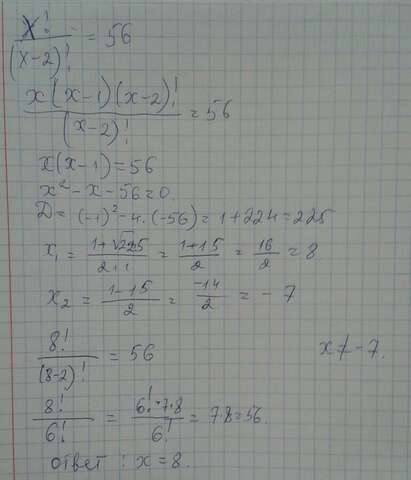 x! / (x-2)! = 56
x(x-1)(x-2)! / (x-2)! = 56
x(x-1)=56
x² - x - 56 = 0.
D = (-1)² - 4·(-56) = 1 + 224 = 225
x₁ = (1+√225) / (2·1) = (1+15) / 2 = 16/2 = 8
x₂ = (1-15) / 2 = -14/2 = -7
8! / (8-2)! = 56 x ≠ -7.
8! / 6! = 6!·7·8 / 6! = 7·8=56.
ответ : x = 8.